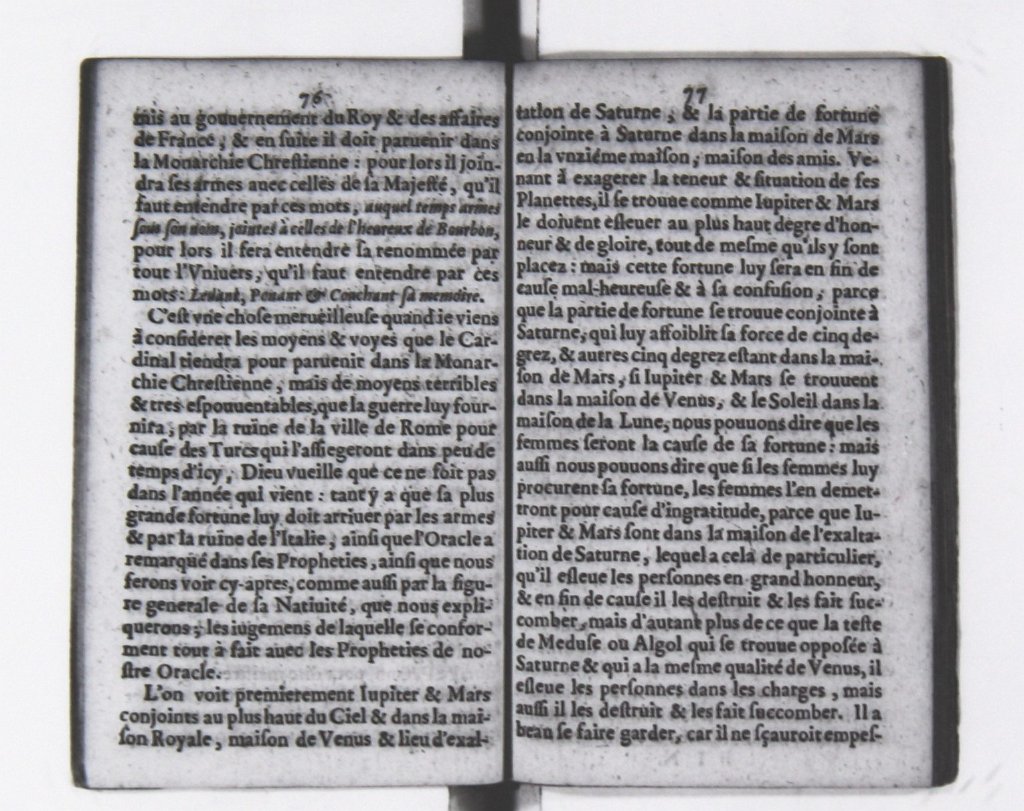 76
mis au gouuernement du Roy & des affaires
de France, & en suite il doit paruenir dans
la Monarchie Chrestienne : pour lors il join-
dra ses armes auec celles de sa Majesté, qu'il
faut entendre par ces mots, auquel temps armes
sous son nom, jointes à celles de l'heureux de Bourbon,
pour lors il fera entendre sa renommée par
tout l'Vniuers, qu'il faut entendre par ces
mots: Leuant, Ponant & Couchant sa memoire.
C'est vne chose merueilleuse quand ie viens
à considerer les moyens & voyes que le Car-
dinal tiendra pour paruenir dans la Monar-
chie Chrestienne, mais de moyens terribles
& tres espouuentables, que la guerre luy four-
nira, par la ruine de la ville de Rome pour
cause des Turcs qui l'assiegeront dans peu de
temps d'icy, Dieu vueille que ce ne soit pas
dans l'année qui vient : tant y a que sa plus
grande fortune luy doit arriuer par les armes
& par la ruine de l'Italie, ainsi que l'Oracle a
remarqué dans ses Propheties, ainsi que nous
ferons voir cy-apres, comme aussi par la figu-
re generale de sa Natiuité, que nous expli-
querons ; les iugemens de laquelle se confor-
ment tout à fait auec les Propheties de no-
stre Oracle.
L'on voit premierement Iupiter & Mars
conjoints au plus haut du Ciel & dans la mai-
son Royale, maison de Venus & lieu d'exal-
77
tation de Saturne, & la partie de fortune
conjointe à Saturne dans la maison de Mars
en la vnziéme maison, maison des amis. Ve-
nant à exagerer la teneur & situation de ses
Planettes, il se trouue comme Iupiter & Mars
le doiuent esleuer au plus haut degre d'hon-
neur & de gloire, tout de mesme qu'ils y sont
placez : mais cette fortune luy sera en fin de
cause mal-heureuse & à sa confusion, parce
que la partie de fortune se trouue conjointe à
Saturne, qui luy affoiblit sa force de cinq de-
grez, & autres cinq degrez estant dans la mai-
son de Mars, si Iupiter & Mars se trouuent
dans la maison de Venus, & le Soleil dans la
maison de la Lune, nous pouuons dire que les
femmes seront la cause de sa fortune : mais
aussi nous pouuons dire que si les femmes luy
procurent sa fortune, les femmes l'en demet-
tront pour cause d'ingratitude, parce que Iu-
piter & Mars sont dans la maison de l'exalta-
tion de Saturne, lequel a cela de particulier,
qu'il esleue les personnes en grand honneur,
& en fin de cause il les destruit & les fait suc-
comber, mais d'autant plus de ce que la teste
de Meduse ou Algol qui se trouue opposée à
Saturne & qui a la mesme qualité de Venus, il
esleue les personnes dans les charges, mais
aussi il les destruit & les fait succomber. Il a
beau se faire garder, car il ne sçauroit empes-